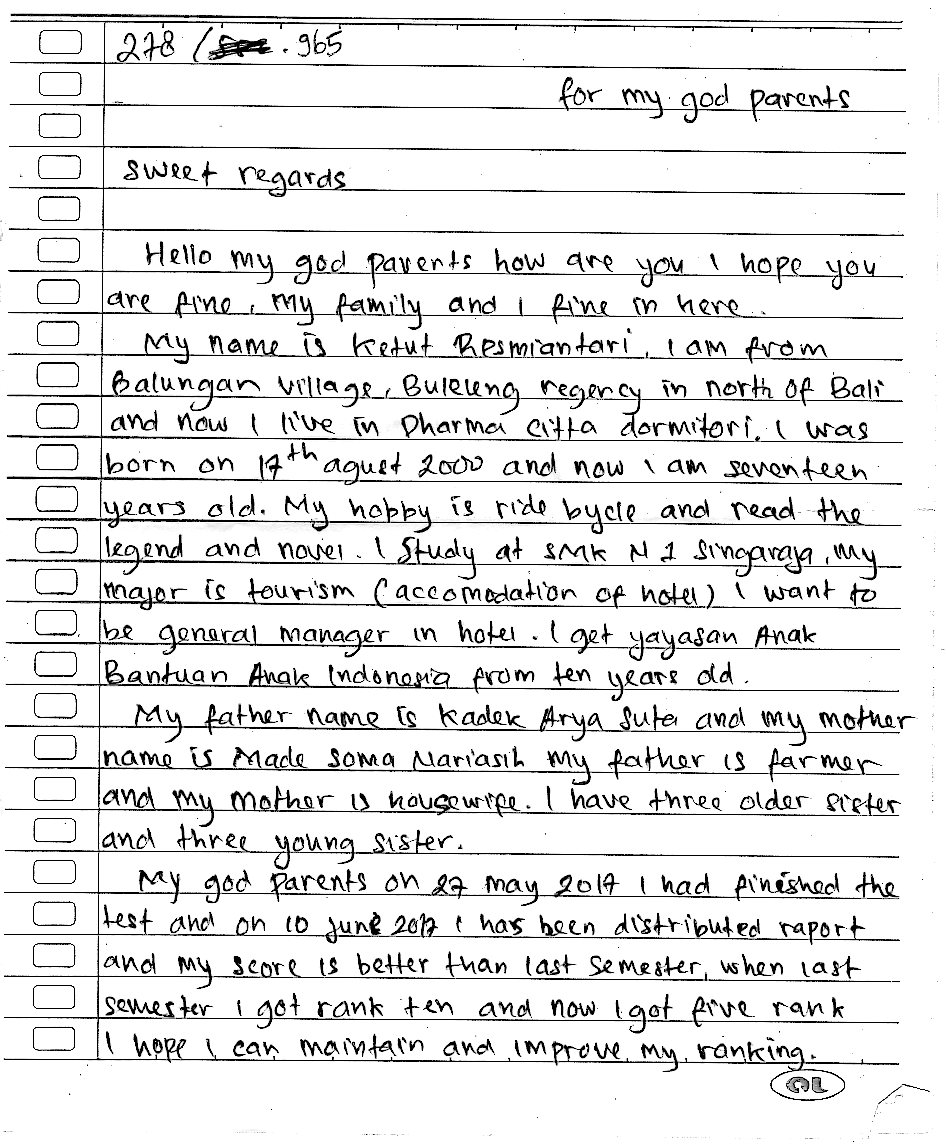 278 / . 965
for my god parents
sweet regards
Hello my god parents how are you I hope you
are fine, my family and I fine in here.
My name is Ketut Resmiantari, I am from
Balungan village, Buleleng regency in north of Bali
and now I live in Dharma citta dormitori. I was
born on 17th agust 2000 and now I am seventeen
years old. My hoppy is ride bycle and read the
legend and novel. I study at SMK N 1 Singaraja, my
major is tourism (accomodation of hotel) I want to
be general manager in hotel. I get yayasan Anak
Bantuan Anak Indonesia from ten years old.
My father name is Kadek Arya Suta and my mother
name is Made Soma Nariasih my father is farmer
and my mother is housewife. I have three older sister
and three young sister.
My god parents on 27 may 2017 I had fineshed the
test and on 10 june 2017 I has been distributed raport
and my score is better than last semester, when last
semester I got rank ten and now I got five rank
I hope I can maintain and improve my ranking.